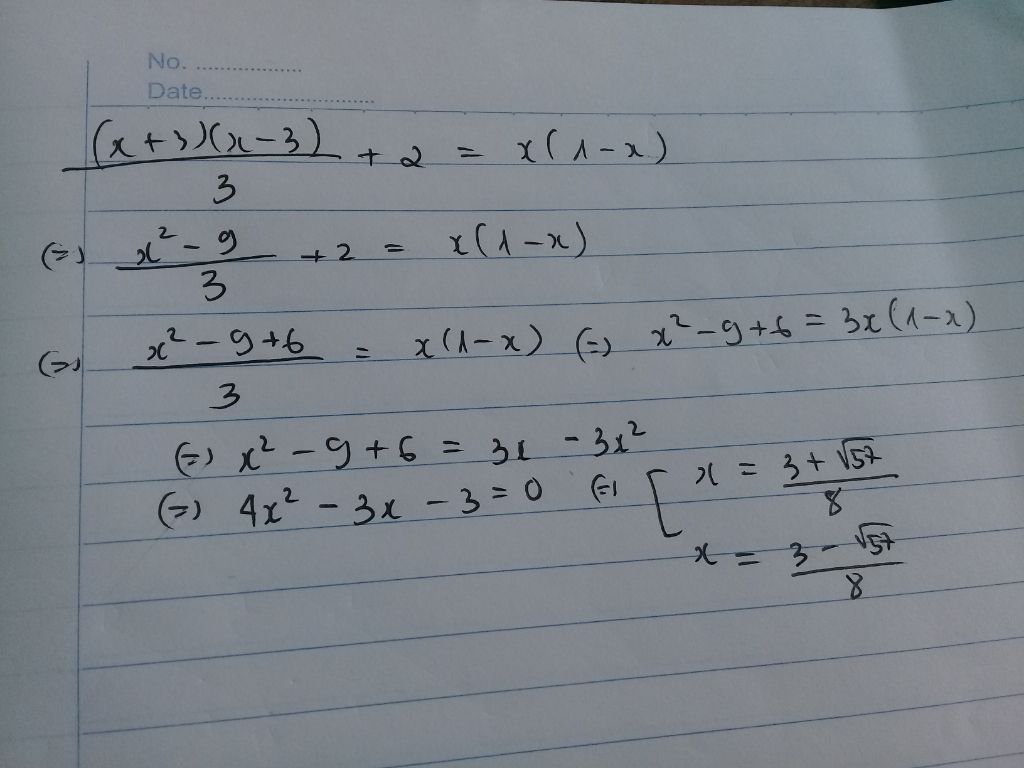 No. ....................
Date................................
(x+3)(x-3)/3 + 2 = x(1-x)
(=) x²-9/3 + 2 = x(1-x)
(=) x²-9+6/3 = x(1-x) (=) x²-9+6 = 3x(1-x)
(=) x²-9+6 = 3x - 3x²
(=) 4x² - 3x - 3 = 0 (=) [ x = 3+√57/8
x = 3-√57/8